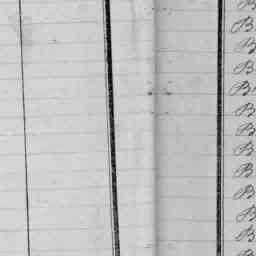 B
B
B
B
B
B
B
B
B
B
B
B
B